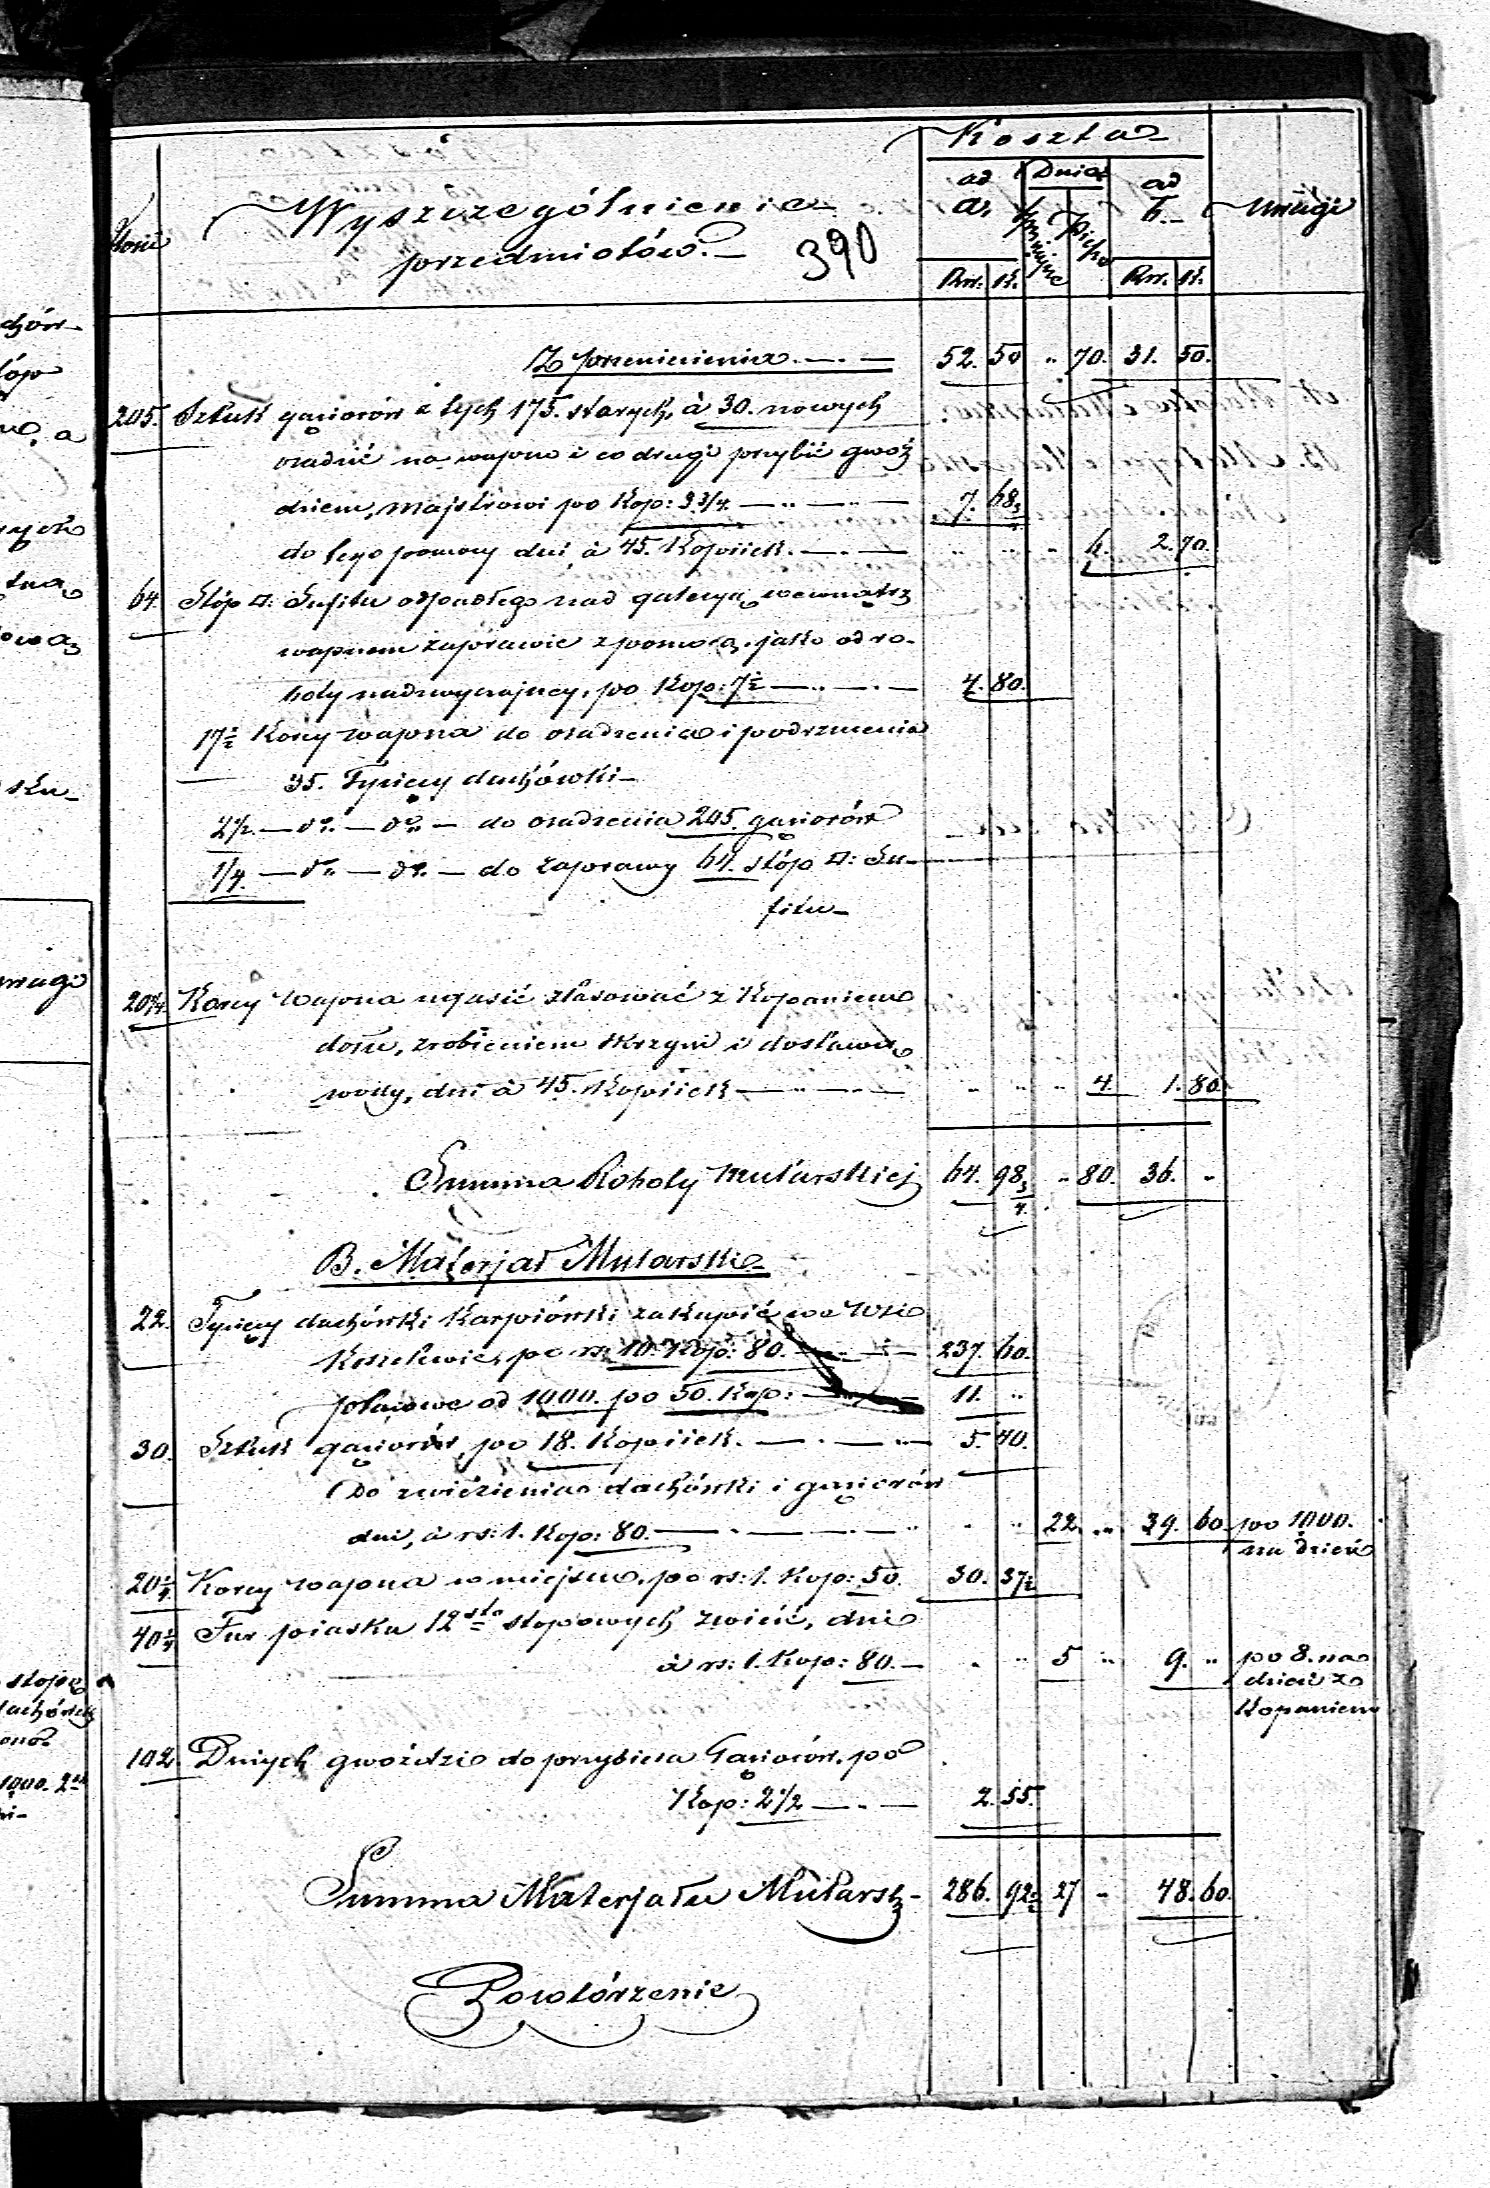 Koszta
ad Dnia ad
Ilość Wyszczególnienie a. Sprzężajne Piesze b. Uwagi
przedmiotów. 390
Rsr. K. Rsr. K.
Z przeniesienia. 52. 50 " 70. 31. 50.
205. Sztuk gąsiorów z tych 175. starych, à 30. nowych
osadzić na wapno i co drugi przybić gwoź
dziem, majstrowi po Kop: 3 3/4. 7. 68 3/4
do tego pomocy dni à 45. Kopiiek. " " " 6. 2. 70.
64. Stóp □: Sufitu odpadłego nad galeryą wewnątrz
wapnem zaprawić z pomocą, jako od ro-
boty nadzwyczajnej, po Kop: 7 1/2 4. 80.
17 1/2 Korcy wapna do osadzenia i podrzucenia
35. Tysięcy dachówki
2 1/2. — do. — do. — do osadzenia 205. gąsiorów
1/4. — do. — do. — do zaprawy 64. stóp □: Su-
fitu
20 1/4 Korcy wapna ugasić zlasować z Kopaniem
dołu, zrobieniem skrzyni i dostawą
wody, dni à 45. Kopiiek " " " 4. 1. 80.
Summa Roboty Mularskiej 64. 98 3/4. " 80. 36. "
B. Materjał Mularski
22. Tysięcy dachówki Karpiówki zakupić we Wsi
po rs. 10. Kop: 80. 237. 60.
placowe od 1000. po 50. Kop: 11. "
30. Sztuk gąsiorów, po 18. Kopiiek. 5. 40.
Do zwiezienia dachówki i gąsiorów
dni, à rs: 1. Kop: 80. " " 22. " 39. 60. po 1000.
na dzień
20 1/4 Korcy wapna w miejscu, po rs: 1. Kop: 50. 30. 37 1/2
40 1/2 Fur piasku 12sto stopowych zwieść, dni
à rs: 1. Kop: 80. " " 5 " 9. " po 8. na
dzień z
Kopaniem
102. Dużych gwoździ do przybicia Gąsiorów, po
Kop: 2 1/2 2. 55.
Summa Materjału Mularsk. 286. 92 1/2 27 " 48. 60.
Powtórzenie